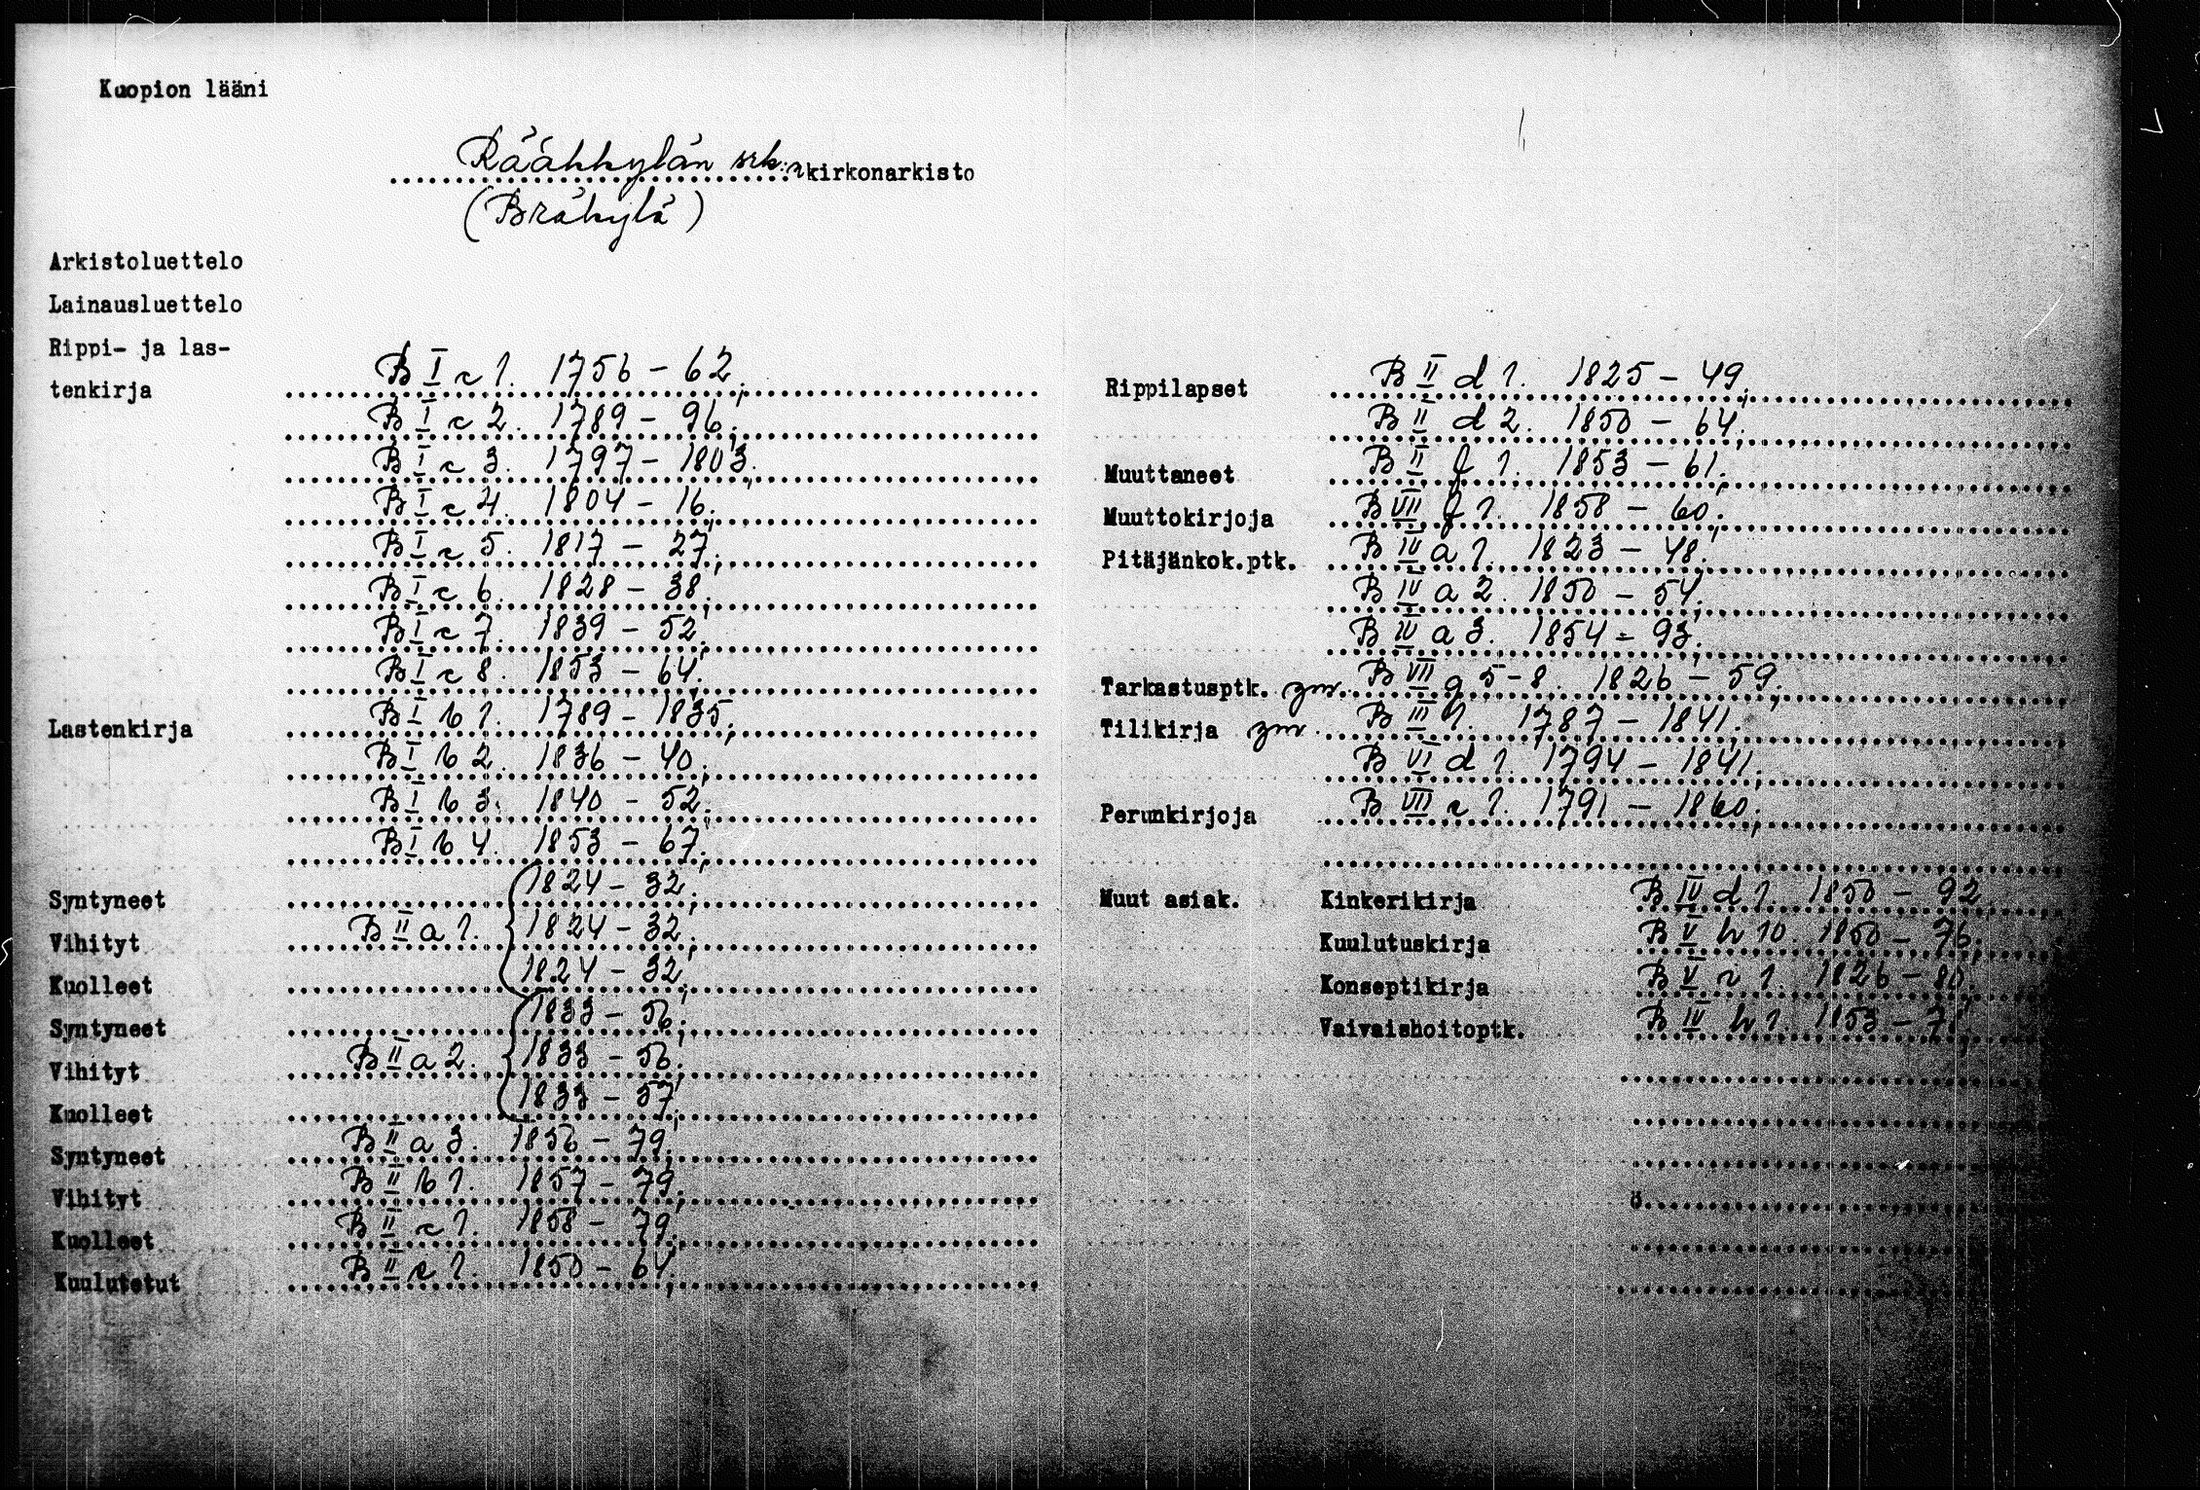 Kuopion lääni
Rääkkylän srk:n kirkonarkisto
(Bräkylä)
Arkistoluettelo
Lainausluettelo
Rippi- ja las-
tenkirja B I c 1. 1756 - 62;
B I c 2. 1789 - 96;
B I c 3. 1797 - 1803;
B I c 4. 1804 - 16;
B I c 5. 1817 - 27;
B I c 6. 1828 - 38;
B I c 7. 1839 - 52;
B I c 8. 1853 - 64;
Lastenkirja B I b 1. 1789 - 1835;
B I b 2. 1836 - 40;
B I b 3. 1840 - 52;
B I b 4. 1853 - 67;
Syntyneet 1824 - 32;
Vihityt B II a 1. 1824 - 32;
Kuolleet 1824 - 32;
Syntyneet 1833 - 56;
Vihityt B II a 2. 1833 - 56;
Kuolleet 1833 - 57;
Syntyneet B II a 3. 1856 - 79;
Vihityt B II b 1. 1857 - 79;
Kuolleet B II c 1. 1858 - 79;
Kuulutetut B II e 1. 1850 - 64;
Rippilapset B II d 1. 1825 - 49;
B II d 2. 1850 - 64;
Muuttaneet B II f 1. 1853 - 61;
Muuttokirjoja B VII f 1. 1858 - 60;
Pitäjänkok.ptk. B IV a 1. 1823 - 48;
B IV a 2. 1850 - 54;
B IV a 3. 1854 - 93;
Tarkastusptk. ym. B VII g 5-8. 1826 - 59;
Tilikirja ym. B III 1. 1787 - 1841;
B VI d 1. 1794 - 1841;
Perunkirjoja B VII c 1. 1791 - 1860;
Muut asiak. Kinkerikirja B IV d 1. 1850 - 92
Kuulutuskirja B V h 10. 1850 - 76;
Konseptikirja B V c 1. 1826 - 80;
Vaivaishoitoptk. B IV h 1. 1853 -